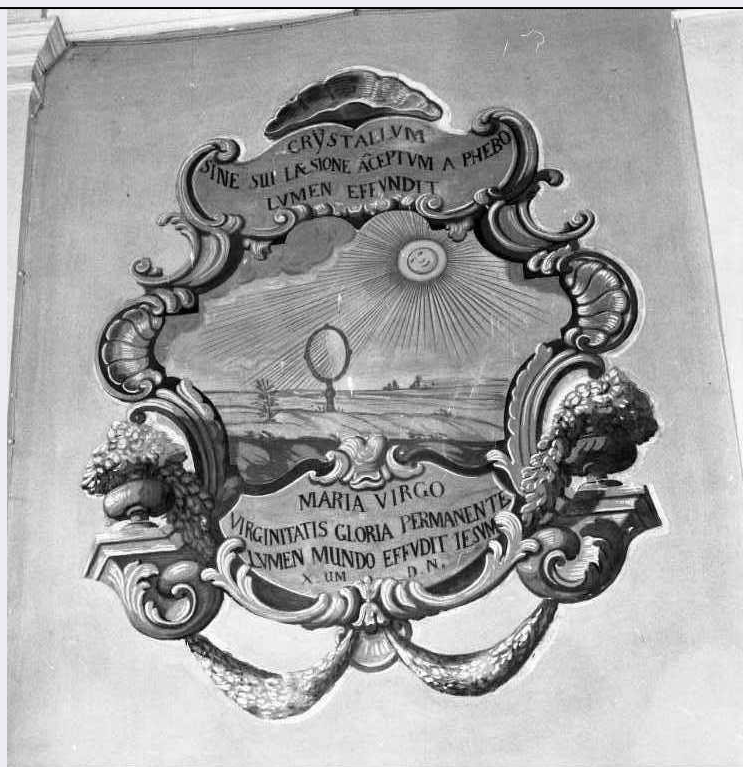 CRŸSTALLVM
SINE SUI LÆSIONE ACEPTVM A PHEBO
LVMEN EFFVNDIT
MARIA VIRGO
VIRGINITATIS GLORIA PERMANENTE
LVMEN MUNDO EFFVDIT IESVM
X UM D.N.